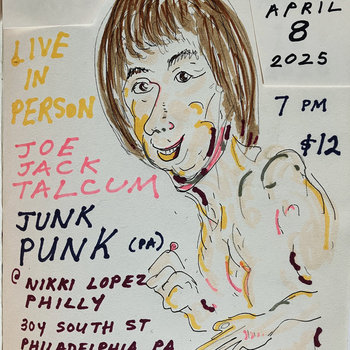 APRIL
8
2025
LIVE
IN
PERSON
7 PM
$12
JOE
JACK
TALCUM
JUNK
PUNK (PA)
@ NIKKI LOPEZ
PHILLY
304 SOUTH ST
PHILADELPHIA PA